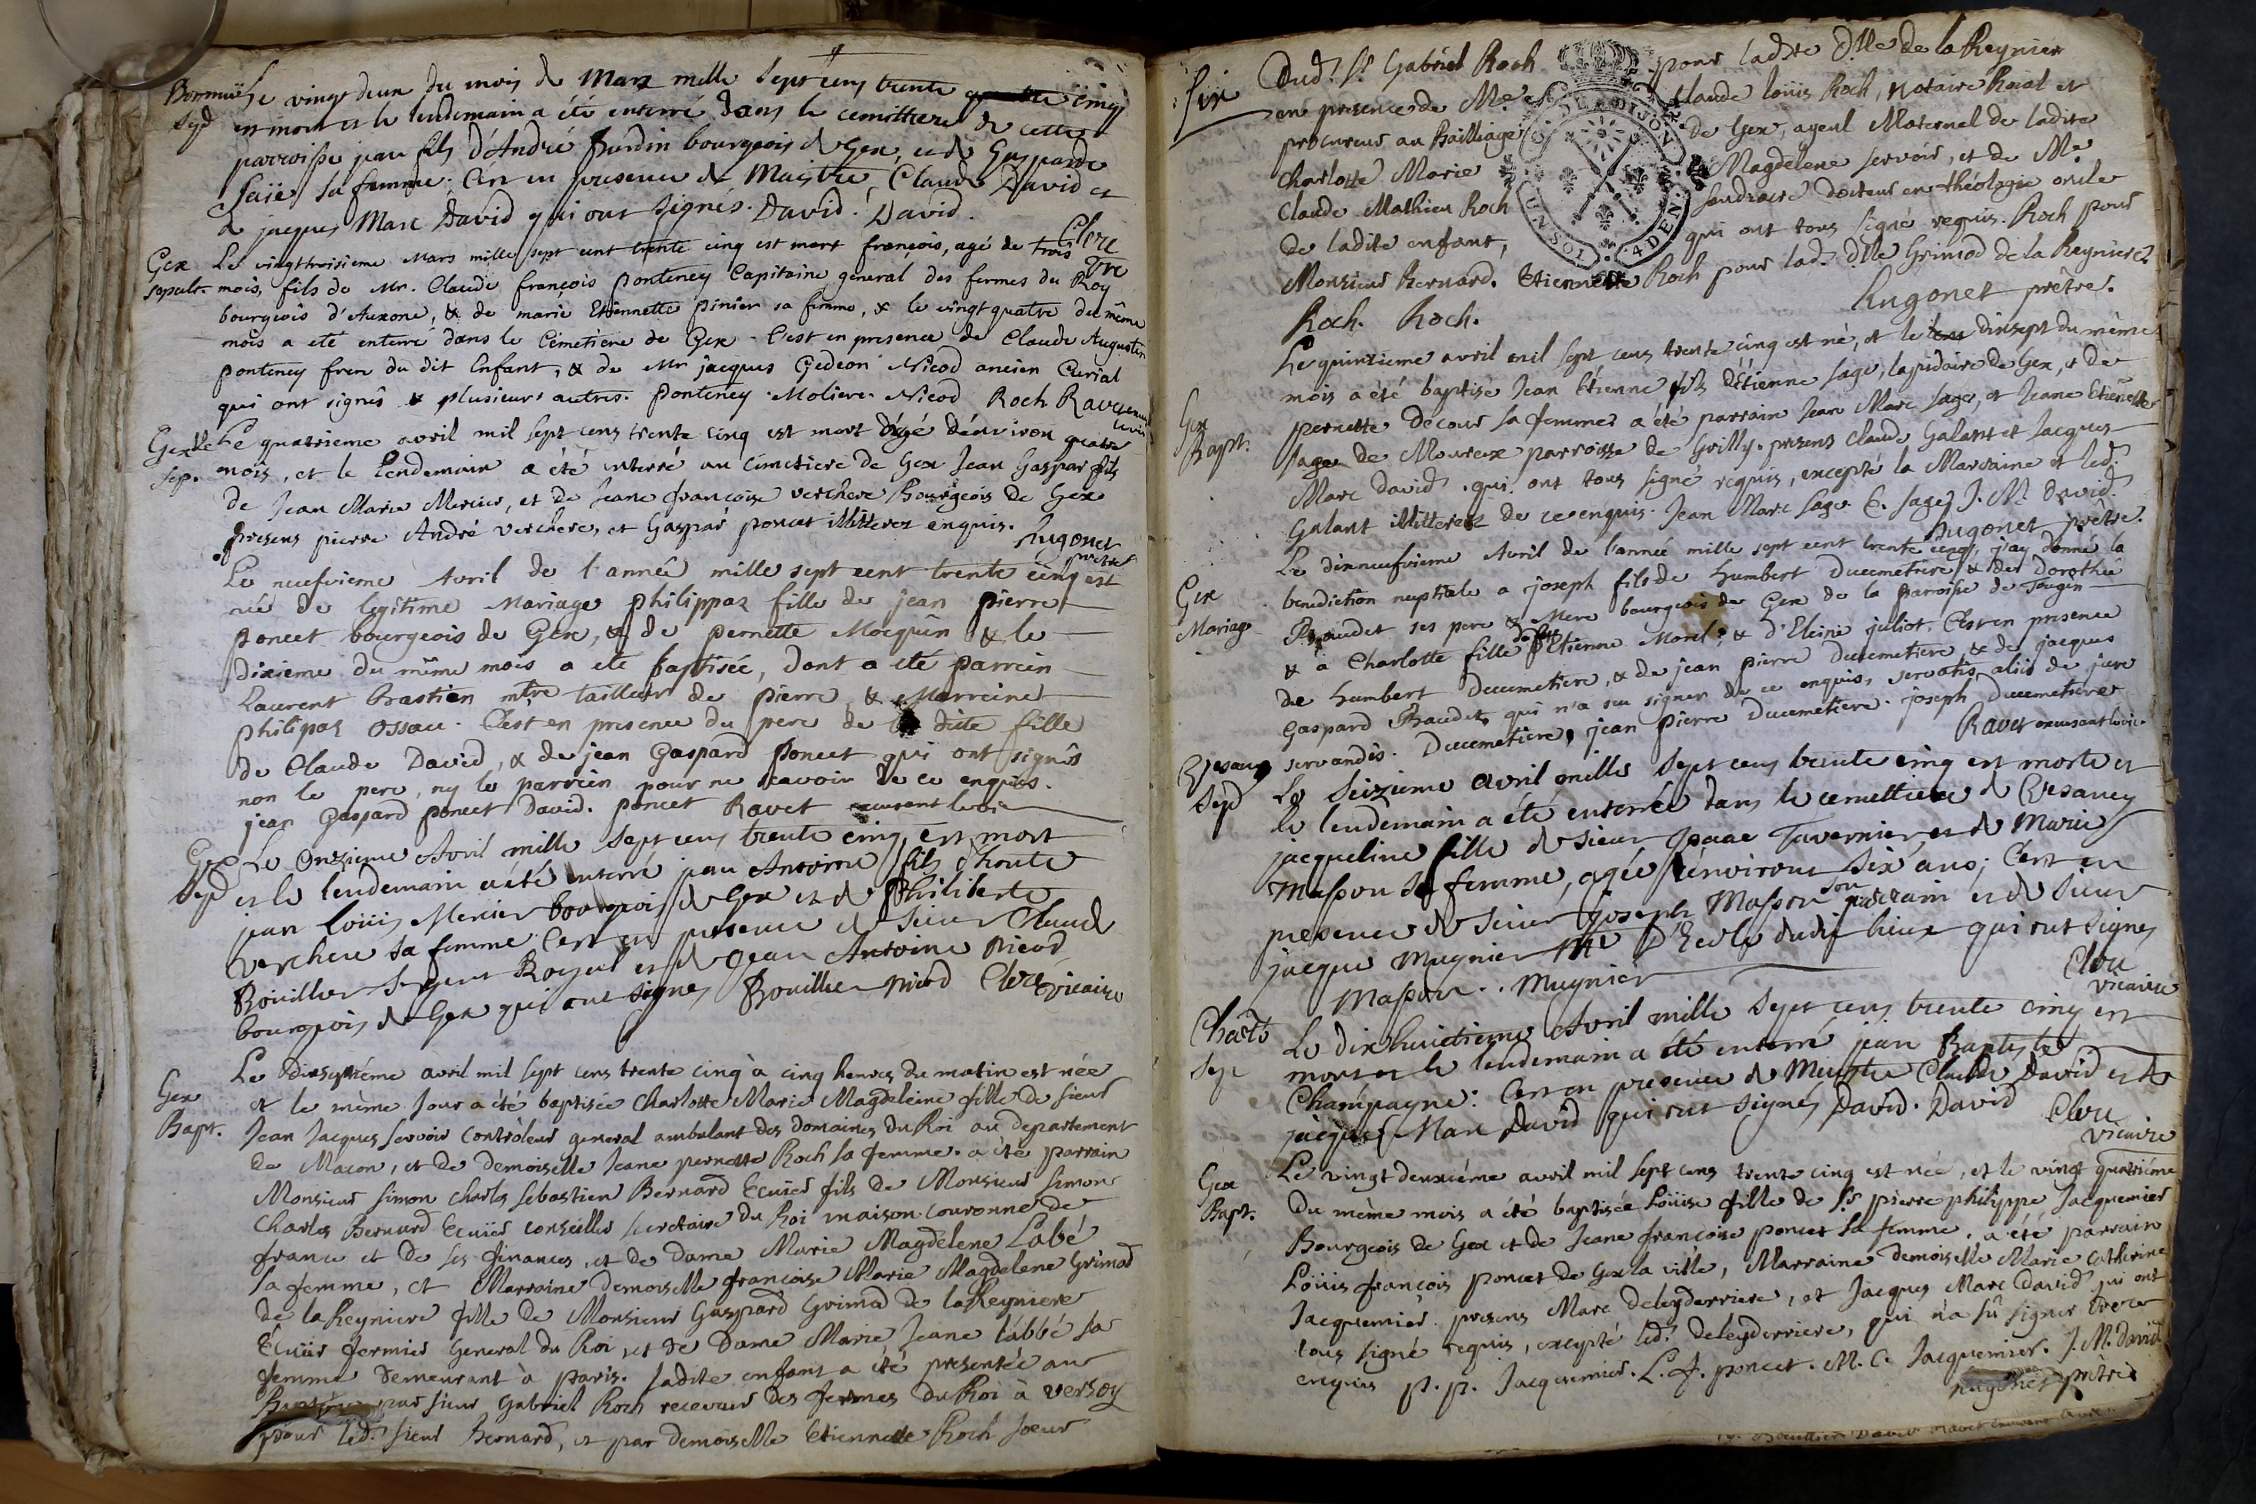 Le vingt deux du mois de Mars mille sept cens trente cinq
Sep
est mort et le lendemain a été enterré dans le cemittiere de cette
parroisse jean fils d'André Jurdin bourgeois de Gex et de Gasparde
sa femme; C'est en presence de Maistre Claude David et
de jacques Marc David qui ont signés. David. David.
Clerc
Gex
Sepult.
Le vingttroisieme Mars mille sept cent trente cinq est mort françois, agé de trois
mois, fils de Mr. Claude françois Ponteney Capitaine general des fermes du Roy
bourgeois d'Auxone, & de marie Etiennette Pinier sa femme, & le vingt quatre du même
mois a eté enterré dans le Cimetiere de Gex. C'est en presence de Claude Augustin
ponteney frere du dit Enfant, & de Mr jacques Gedeon Nicod ancien Curial
qui ont signés & plusieurs autres. Ponteney. Moliere. Nicod Roch Ravet
Sep.
Le quatrieme avril mil sept cens trente cinq est mort agé d'environ quatre
mois, et le lendemain a été enterré au cimetiere de Gex Jean Gaspar fils
de Jean Marie Mercier, et de Jeane françoise verchere Bourgeois de Gex
presens pierre André verchere, et Gaspar poncet illitterez enquis. Hugonet
prêtre
Le neufvieme Avril de l'année mille sept cent trente cinq est
née de legitime Mariage philippaz fille de jean pierre
poncet bourgeois de Gex, & de pernette Mocquin & le
dixieme du même mois a eté baptisée, dont a eté parrein
Laurent bastian mtre tailleur de pierre & Marreine
philipaz ossau. C'est en presence du pere de la dite fille
de Claude David, & de jean Gaspard Poncet qui ont signés
non le pere, ny le parrein pour ne scavoir de ce enquis.
jean Gaspard poncet David. poncet Ravet
Gex
Sep
Le Onzieme Avril mille sept cens trente cinq est mort
et le lendemain a été enterré jean Antoine fils d'honte
jean louis Mercier bourgeois de Gex et de Philiberte
verchere sa femme. C'est en presence de Sieur Claude
Bouillier Sergent Royal et de Jean Antoine Nicod
bourgeois de Gex qui ont signés Bouillier Nicod Clerc vicaire
Gex
Bapt.
Le dixseptiéme avril mil sept cens trente cinq à cinq heures du matin est née
et le même jour a été baptisée Charlotte Marie Magdeleine fille de sieur
Jean Jacques servoir Contrôleur general ambulant des Domaines du Roi au departement
de Macon, et de demoiselle Jeane pernette Roch sa femme. a été parrain
Monsieur simon charles sebastien Bernard Ecuier fils de Monsieur simon
Charles Bernard Ecuier conseiller secretaire du Roi maison couronne de
france et de ses finances, et de Dame Marie Magdelene Labé
sa femme, et Marraine demoiselle françoise Marie Magdelene Grimod
de la Reyniere fille de Monsieur Gaspard Grimod de la Reyniere
Ecuier fermier General du Roi, et de Dame Marie Jeane l'abbé sa
femme demeurant à paris. ladite enfant a été presentée au
par sieur Gabriel Roch receveur des fermes du Roi à versoy
pour led. sieur Bernard, et par demoiselle Etiennette Roch soeur
six
Dud. Sr. Gabriel Roch pour ladite Dlle de la Reyniere
en presence de Me Claude louis Roch, Notaire Roial et
procureur au Bailliage de Gex, ayeul Maternel de ladite
Charlotte Marie Magdelene servoir, et de Me
Claude Mathieu Roch docteur en théologie oncle
de ladite enfant, qui ont tous signé requis. Roch pour
Monsieur Bernard. Etiennette Roch pour lad. Dlle Grimod de la Reyniere.
Roch. Roch. Hugonet prêtre.
G. DE DIJON
UN SOL 4 DEN.
Gex
Bapt.
Le quinzieme avril mil sept cens trente cinq est né, et le dixsept du même
mois a été baptisé Jean Etienne fils d'Etienne sage, lapidaire de Gex, et de
pernette Decour sa femme a été parrain Jean Marc sage, et Jeane Etiennette
sage de Mourex parroisse de Grilly. presens Claude Galant et Jacques
Marc David. qui ont tous signé requis, excepté la Marraine et led.
Galant illitterez de ce enquis. Jean Marc sage E. sage J. M. David.
Hugonet prêtre.
Gex
Mariage
Le dixneufvieme Avril de l'année mille sept cent trente cinq, j'ay donné la
benediction nuptiale a joseph fils de humbert Ducemetiere & de Dorothée
Baudet ses pere & Mere bourgeois de Gex de la parroisse de Tougin
& à Charlotte fille de Etienne Morel, & d'Eleine juliot. C'est en presence
de humbert Ducemetiere, & de jean pierre Ducemetiere & de jacques
Gaspard Baudet, qui n'a seu signer de ce enquis, servatis aliis de jure
servandis. Ducemetiere, jean pierre Ducemetiere. joseph Ducemetiere
Ravet
Sep
Le Seizieme avril mille sept cens trente cinq est morte et
le lendemain a été enterrée dans le cemittiere de Cresancy
jacqueline fille de sieur Isaac Tavernier, et de Marie
Masson sa femme, agée d'environ six ans; C'est en
presence de sieur joseph Masson son parrain et de sieur
jacque Mugnier Mtre D'Ecole dudit lieux qui ont signes
Masson.. Mugnier Clerc
vicaire
Sep
Le dixhuictieme Avril mille sept cens trente cinq est
mort et le lendemain a été enterré jean Baptiste
Champagne: C'est en presence de Maistre Claude David et de
jacque Marc David qui ont signés David. David Clerc
vicaire
Gex
Bapt.
Le vingt deuxiéme avril mil sept cens trente cinq est née, et le vingt quatriéme
du même mois a été baptisée Loüise fille de Sr. pierre philippe Jacquemier
Bourgeois de Gex et de Jeane françoise poncet sa femme. a été parrain
Loüis françois poncet de Gex la ville, Marraine demoiselle Marie Catherine
Jacquemier. presens Marc deleyderriere, et Jacques Marc David qui ont
tous signé requis, excepté led. deleyderriere, qui n'a sû signer de ce
enquis p. p. Jacquemier. L. f. poncet. M. C. Jacquemier. J. M. David
Hugonet prêtre